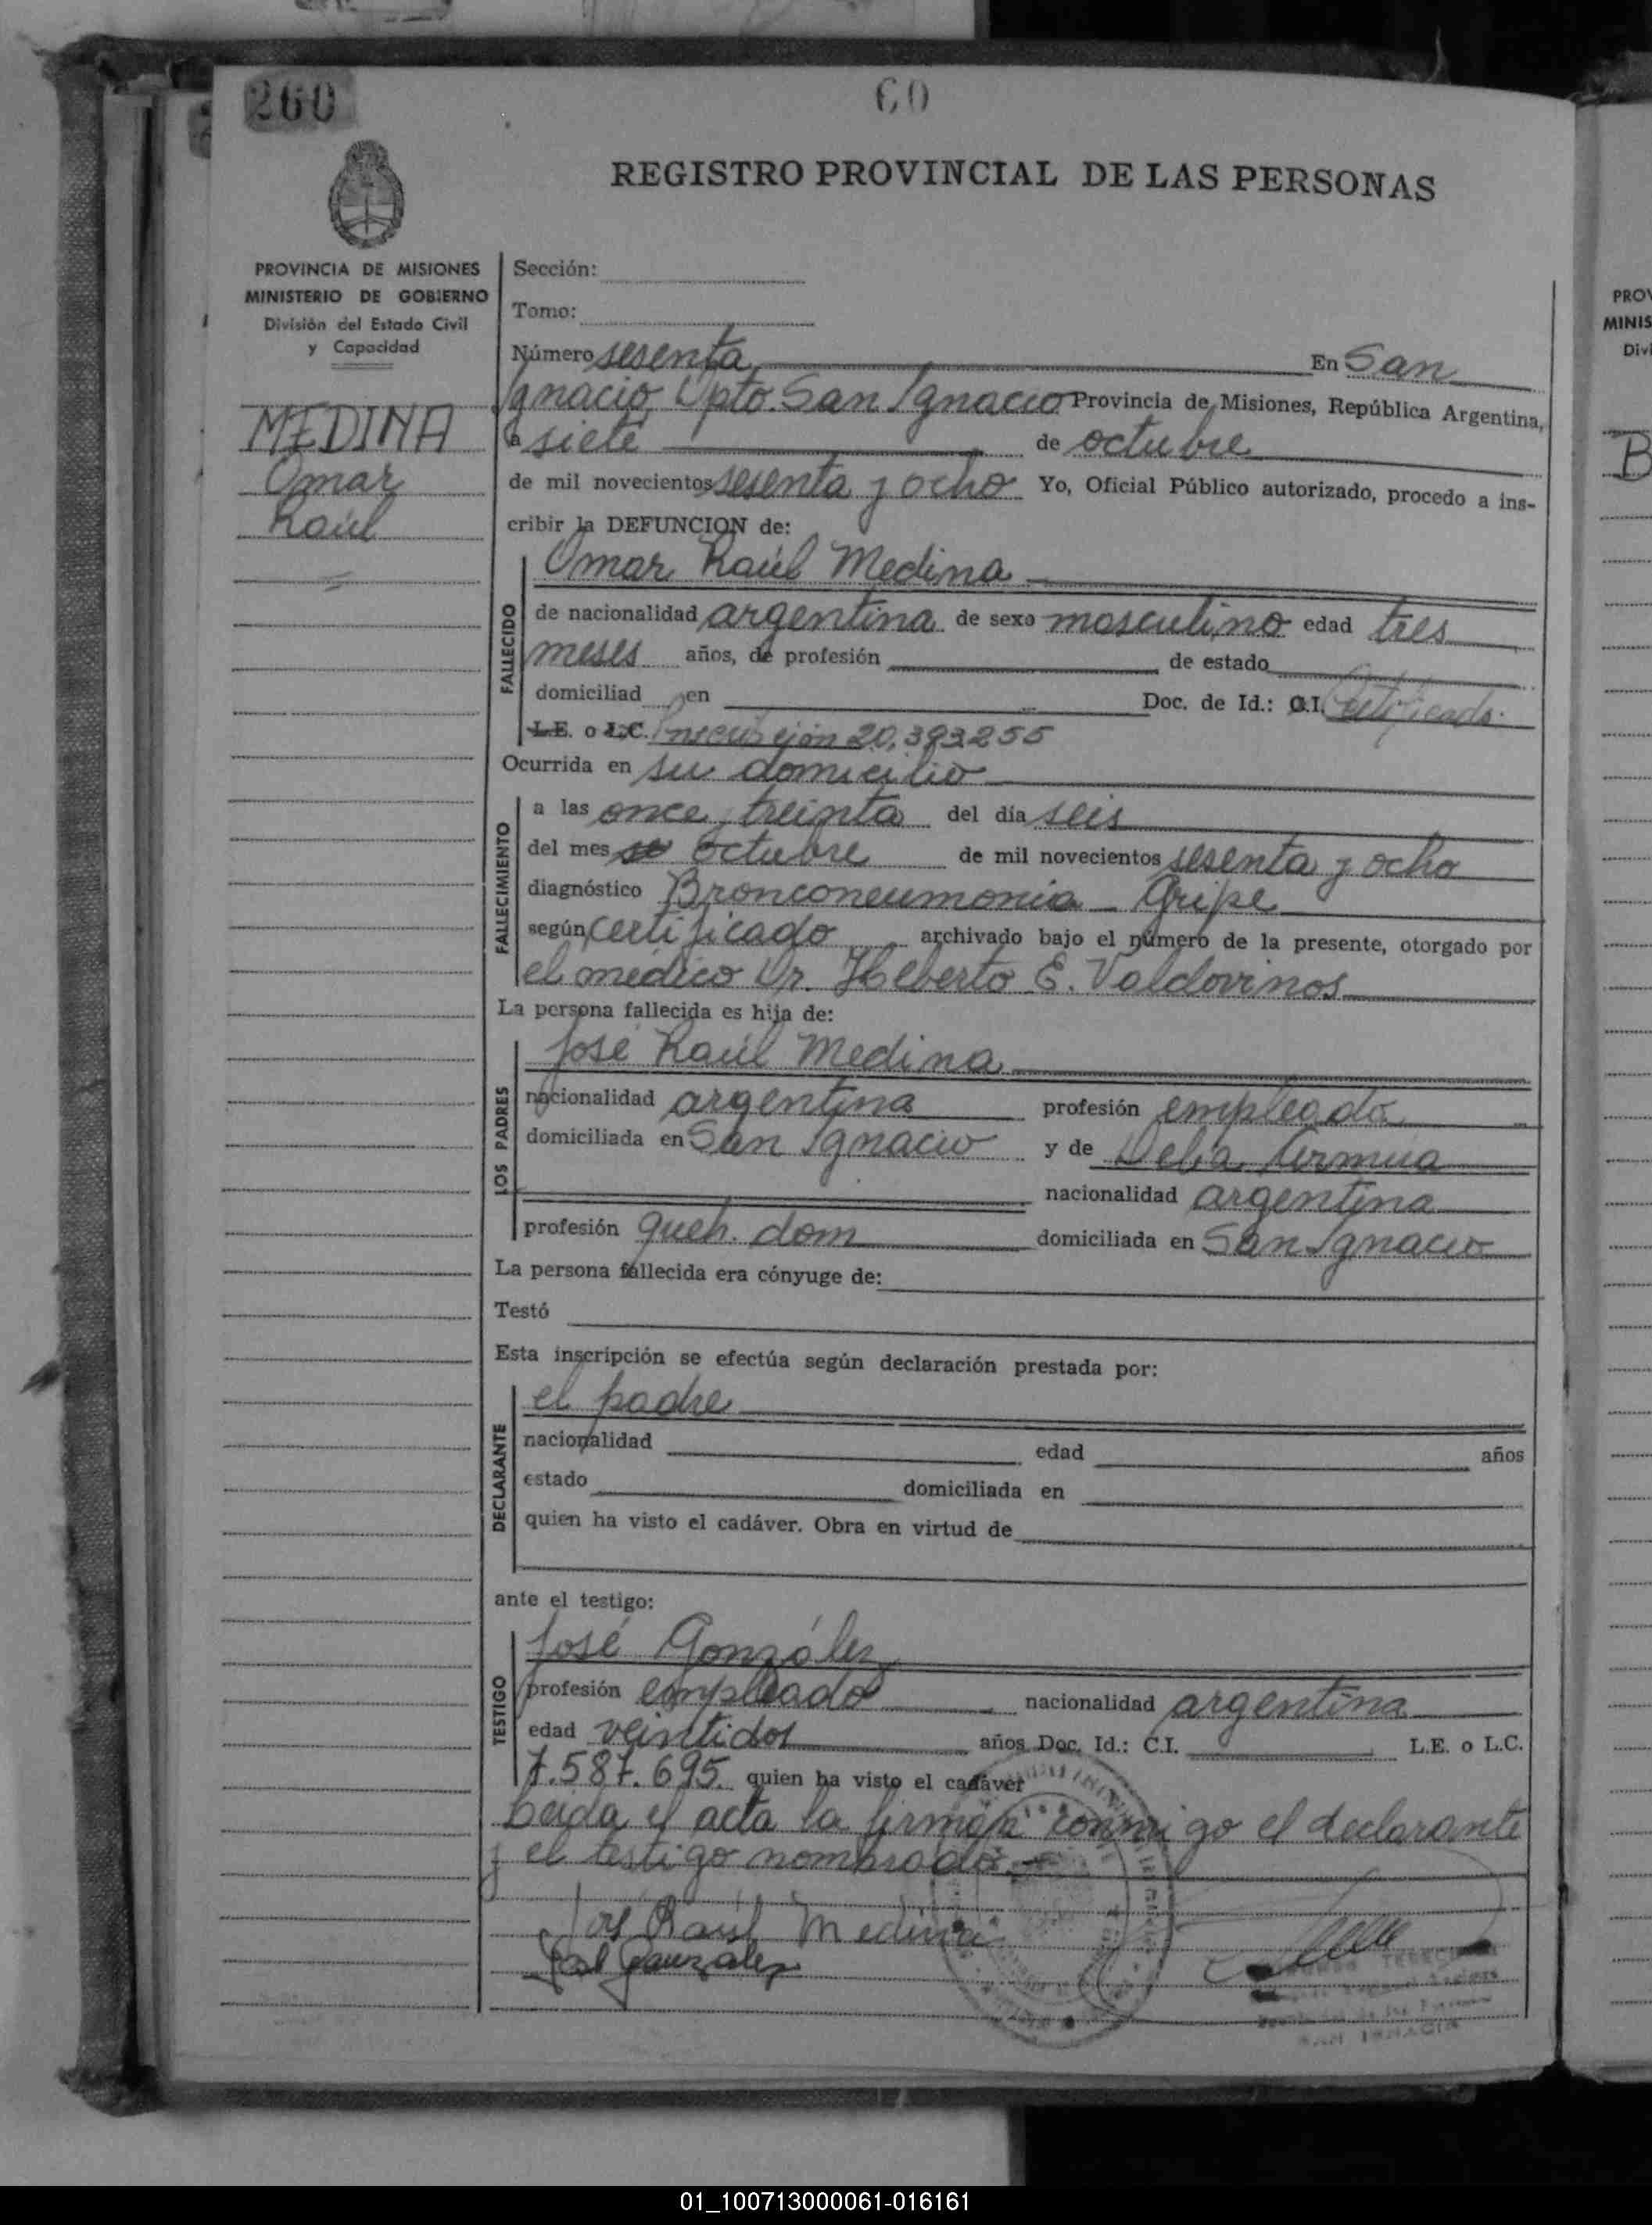 260
60
REGISTRO PROVINCIAL DE LAS PERSONAS
PROVINCIA DE MISIONES
MINISTERIO DE GOBIERNO
División del Estado Civil
y Capacidad
MEDINA
Omar
Raúl
Sección:
Tomo:
Número sesenta En San
Ignacio, Dpto. San Ignacio Provincia de Misiones, República Argentina,
a siete de octubre
de mil novecientos sesenta y ocho Yo, Oficial Público autorizado, procedo a ins-
cribir la DEFUNCION de:
FALLECIDO
Omar Raúl Medina
de nacionalidad argentina de sexo masculino edad tres
meses años, de profesión de estado
domiciliad en Doc. de Id.: C.I. Certificado
L.E. o L.C. Inscripción 20.393255
Ocurrida en su domicilio
FALLECIMIENTO
a las once y treinta del día seis
del mes octubre de mil novecientos sesenta y ocho
diagnóstico Bronconeumonia - Gripe
según certificado archivado bajo el número de la presente, otorgado por
el médico Dr. Heberto E. Valdovinos
La persona fallecida es hija de:
LOS PADRES
José Raúl Medina
nacionalidad argentina profesión empleado
domiciliada en San Ignacio y de Delia
nacionalidad argentina
profesión queh. dom domiciliada en San Ignacio
La persona fallecida era cónyuge de:
Testó
Esta inscripción se efectúa según declaración prestada por:
DECLARANTE
el padre
nacionalidad edad años
estado domiciliada en
quien ha visto el cadáver. Obra en virtud de
ante el testigo:
TESTIGO
José González
profesión empleado nacionalidad argentina
edad veintidos años Doc. Id.: C.I. L.E. o L.C.
7.587.695. quien ha visto el cadáver
Leida el acta la firman conmigo el declarante
y el testigo nombrado.
José Raúl Medina
José Gonzalez
SAN IGNACIO
PROV
MINIS
Divi
B
01_100713000061-016161